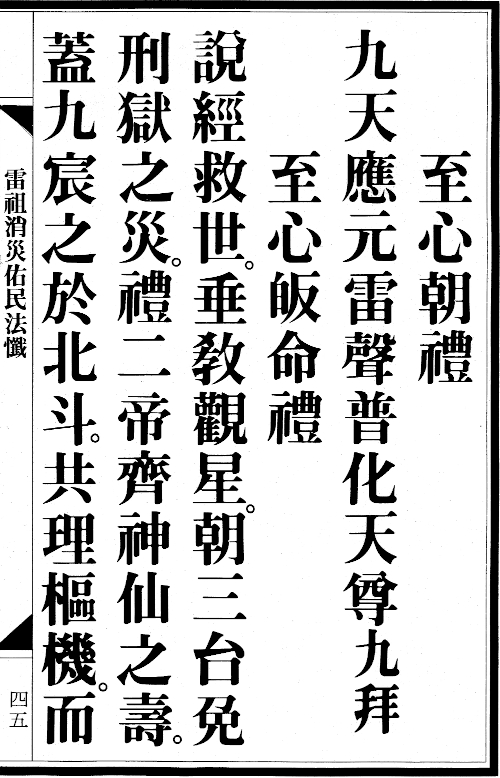 至心朝禮
九天應元雷聲普化天尊九拜
至心皈命禮
說經救世。垂教觀星。朝三台免
刑獄之災。禮二帝齊神仙之壽。
蓋九宸之於北斗。共理樞機。而
雷祖消災佑民法懺
四五